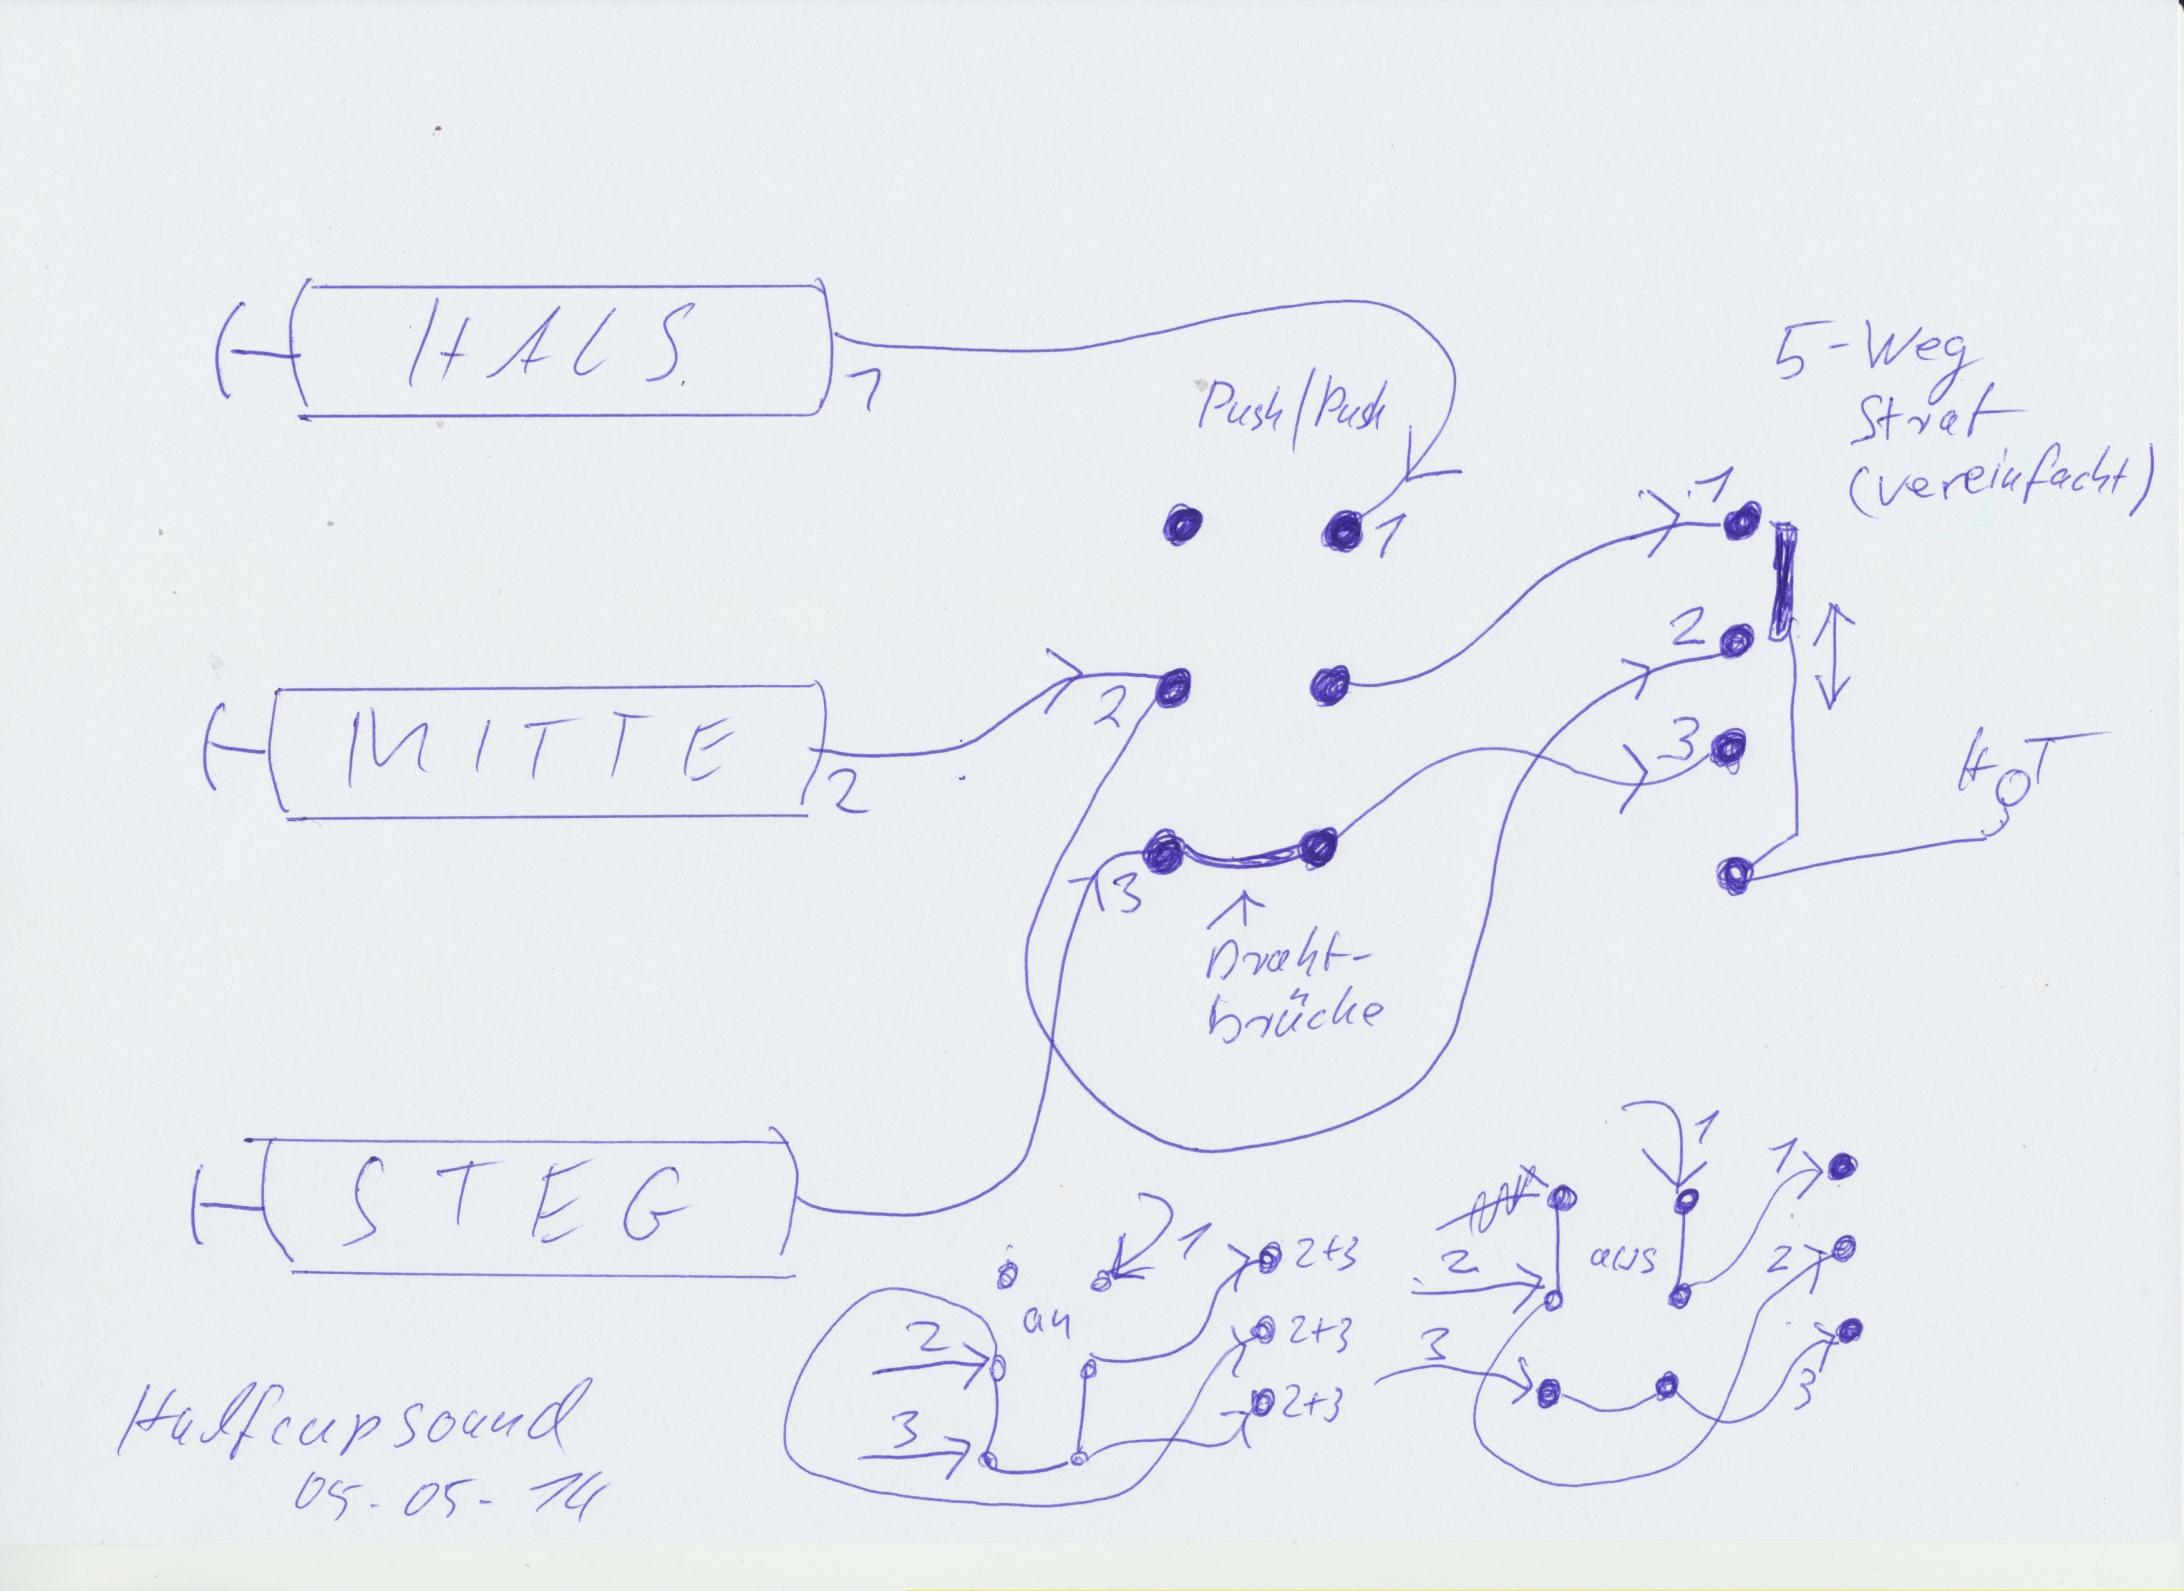 HALS
1
Push/Push
1
5-Weg
Strat
(vereinfacht)
1
2
3
MITTE
2
2
HOT
3
Draht-
brücke
STEG
1
2+3
an
2
2+3
3
2+3
1
1
2
aus
2
3
3
Halfcupsound
05-05-14